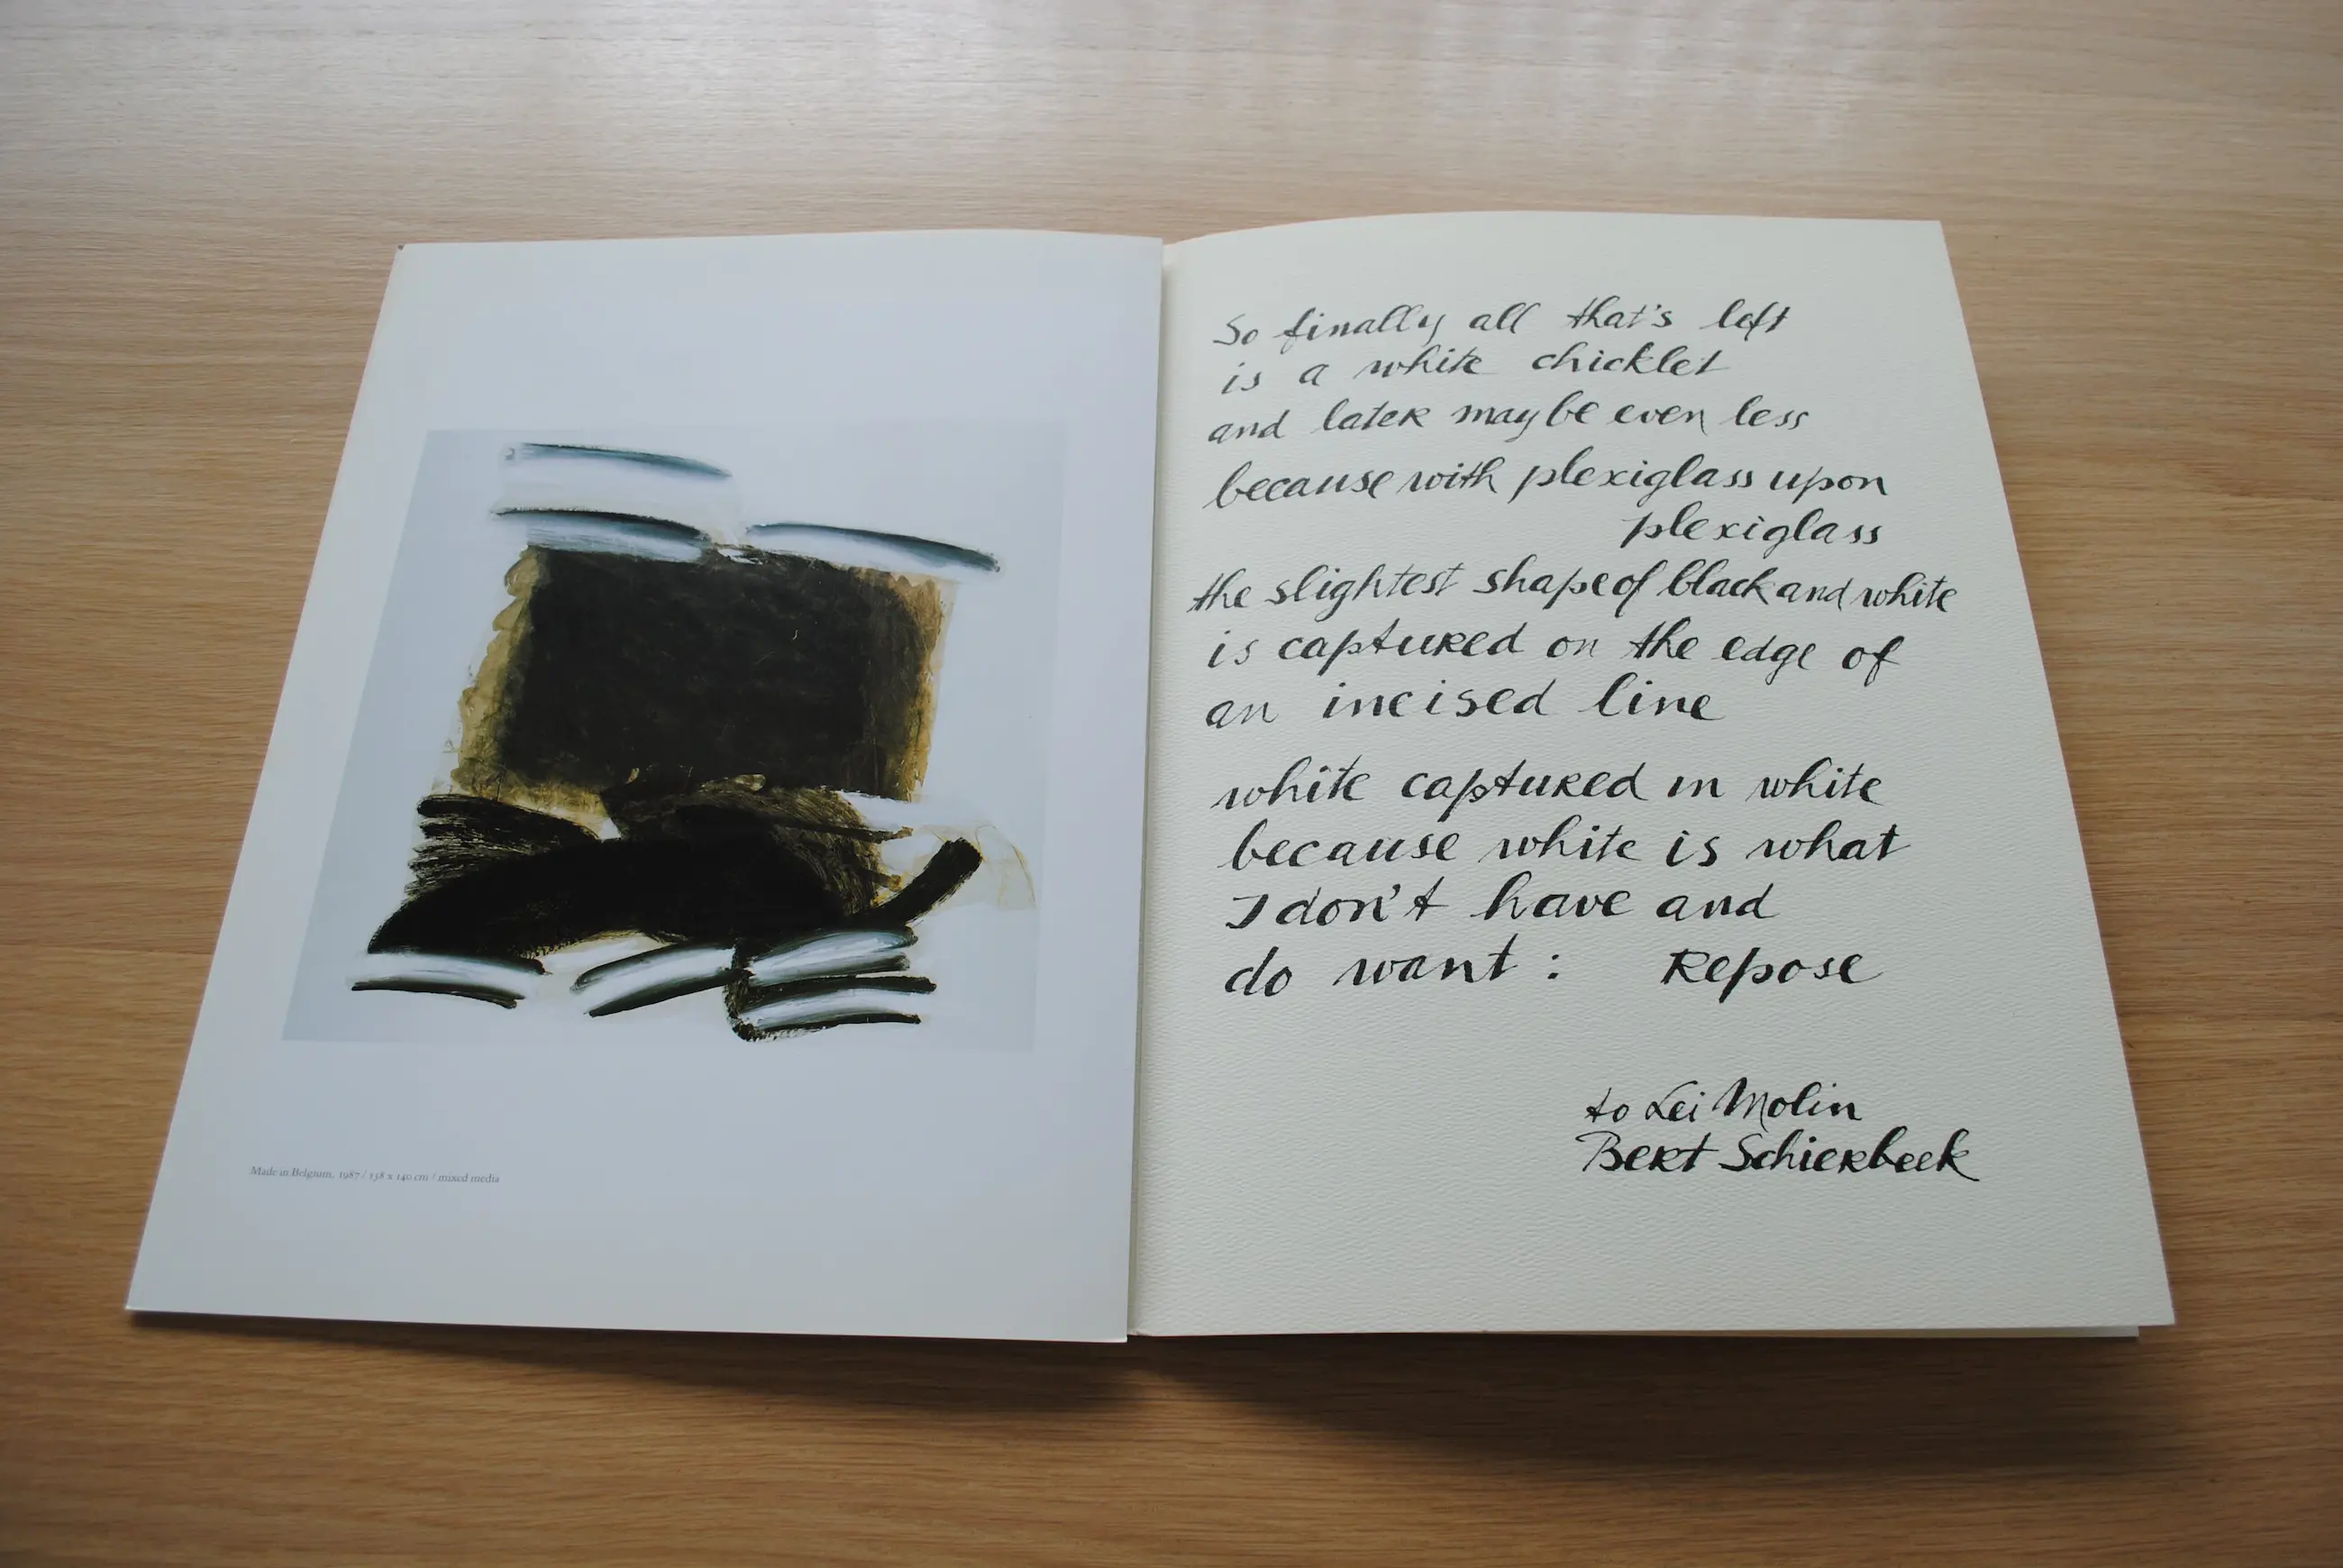 Made in Belgium, 1987 / 138 x 140 cm / mixed media
So finally all that's left
is a white chicklet
and later maybe even less
because with plexiglass upon
plexiglass
the slightest shape of black and white
is captured on the edge of
an incised line
white captured in white
because white is what
I don't have and
do want : Repose
to Lei Molin
Bert Schierbeek